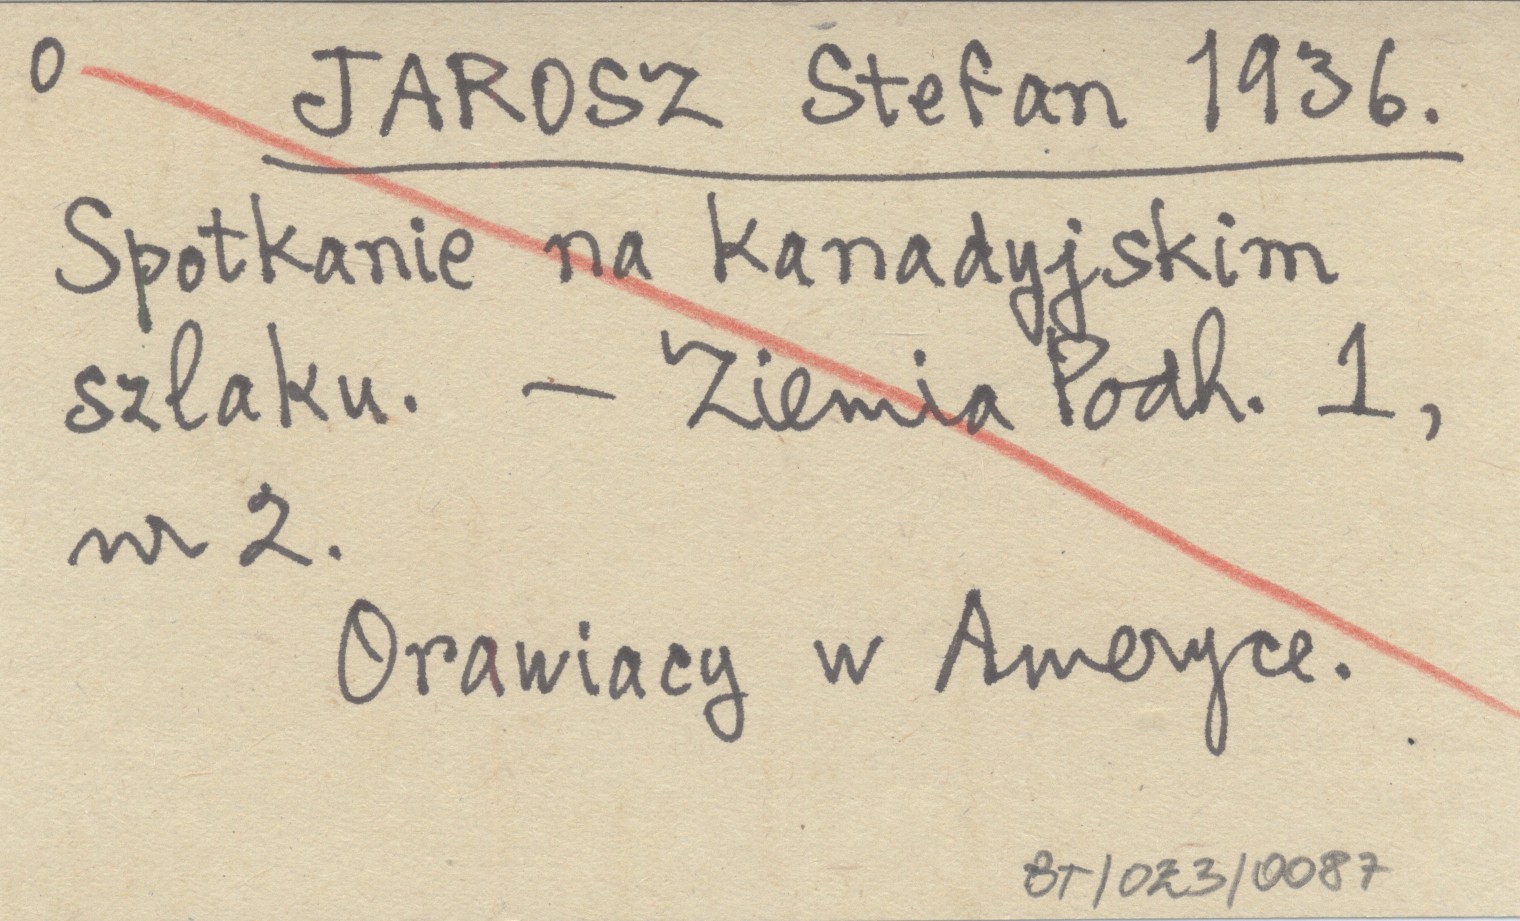 O JAROSZ Stefan 1936.
Spotkanie na kanadyjskim
szlaku. — Ziemia Podh. 1,
nr 2.
Orawiacy w Ameryce.
BT/OZ3/0087